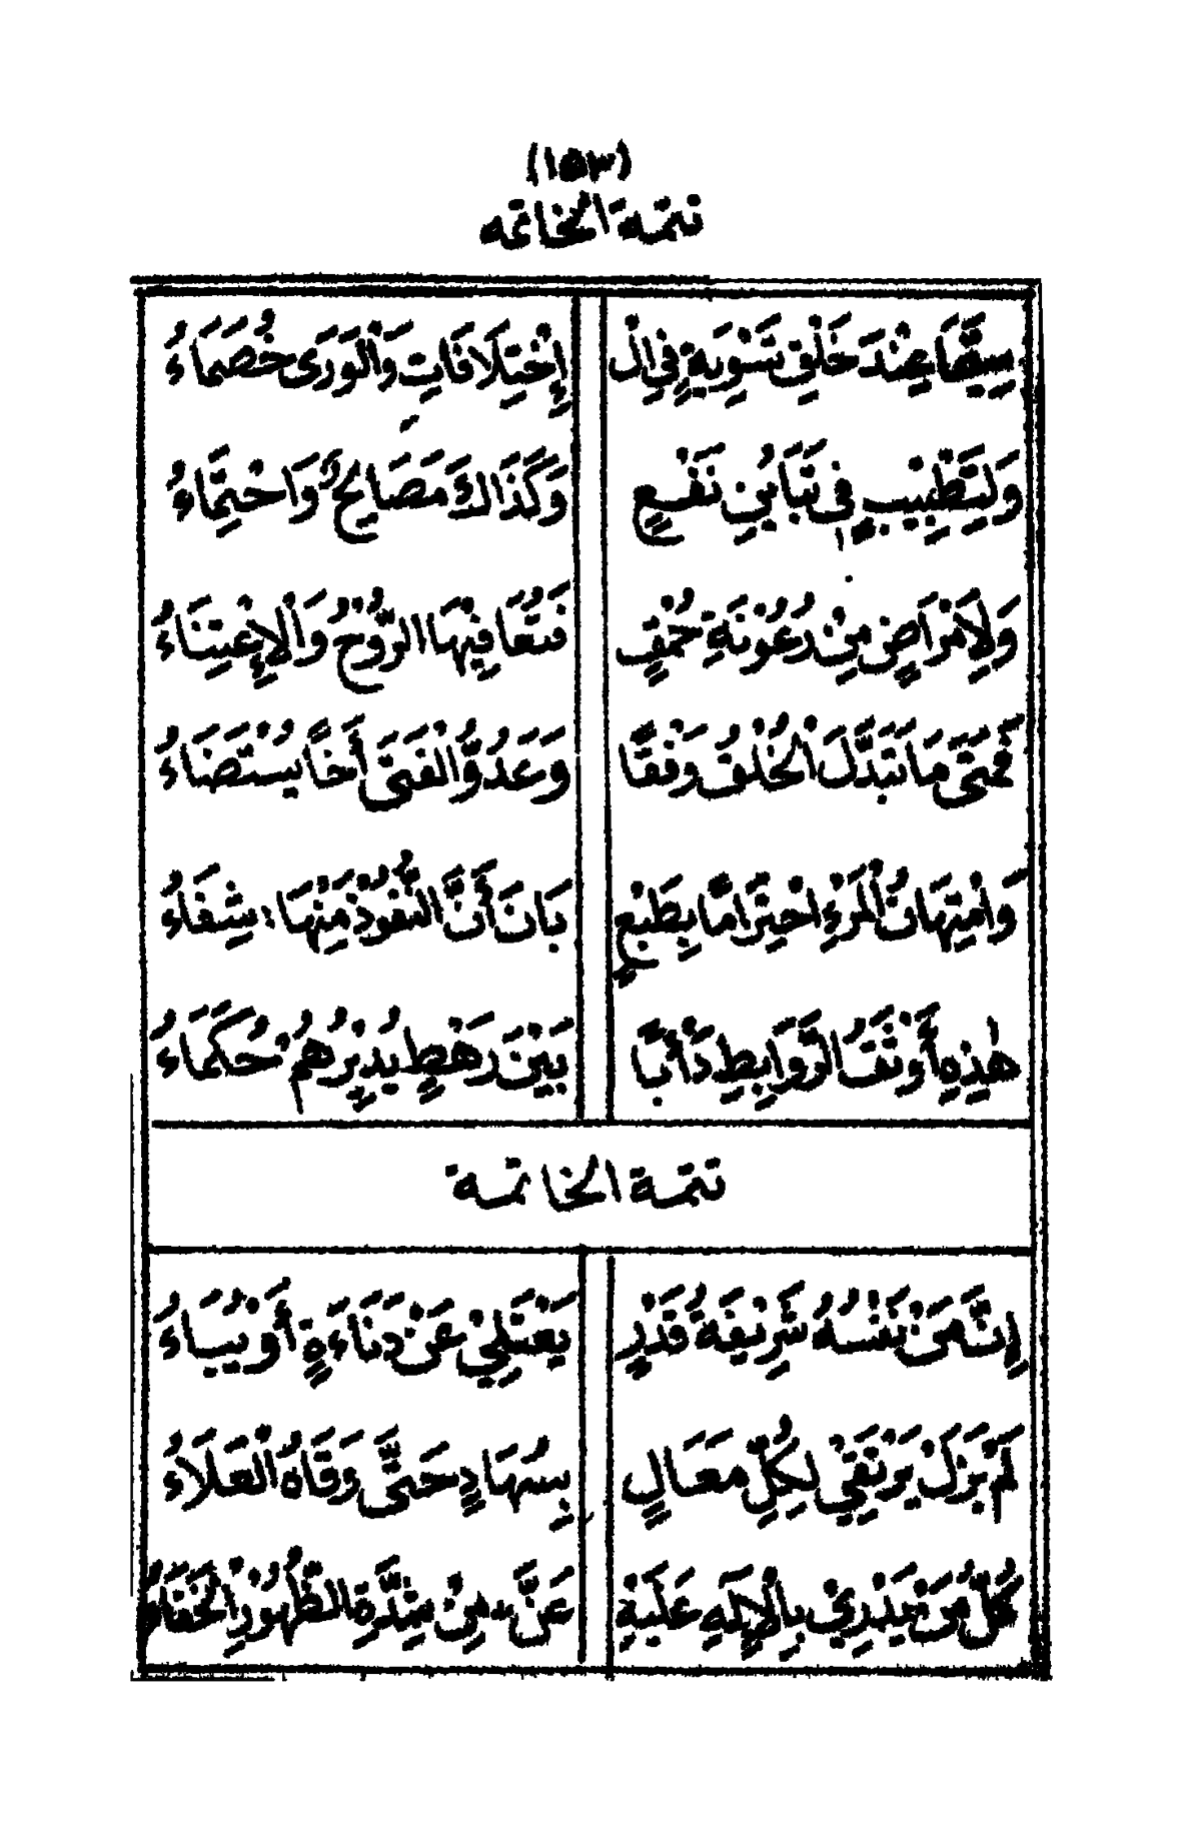 (١٥٣)
تتمة الخاتمه
سِيَّمَا عِنْدَ خَلْقِ تَسْوِيَةٍ فِي الْ إِخْتِلَافَاتِ وَالْوَرَى خُصَمَاءُ
وَلِتَطْبِيبٍ فِي تَبَايُنِ نَفْعٍ وَكَذَاكَ مَصَايِحُ وَاحْتِمَاءُ
وَلِأَمْرَاضٍ مِنْ رُعُونَةِ حُمْقٍ فَتُعَافِيْهَا الرُّوْحُ وَالْإِعْتِنَاءُ
فَمَتَى مَا تَبَدَّلَ الْخُلْقُ وَفْقًا وَعَدُوُّ الْفَتَى أَخًا يُسْتَضَاءُ
وَامْتِهَانُ الْمَرْءِ احْتِرَامًا بِطَبْعٍ بَانَ أَنَّ النُّفُوذَ مِنْهَا شِفَاءُ
هٰذِهِ أَوْثَقُ الرَّوَابِطِ دَأْبًا بَيْنَ رَهْطٍ يُدِيْرُهُمْ حُكَمَاءُ
تتمة الخاتمة
إِنَّ مَنْ نَفْسُهُ شَرِيْفَةُ قَدْرٍ يَعْتَلِيْ عَنْ دَنَاءَةٍ أَوْ يُسَاءُ
لَمْ يَزَلْ يَرْتَقِيْ لِكُلِّ مَعَالٍ بِسُهَادٍ حَتَّى وَقَاهُ الْعَلَاءُ
كُلُّ مَنْ يَدْرِيْ بِالْإِلَهِ عَلَيْهِ عَنَّ مِنْ شِدَّةِ الظُّهُوْرِ الْخَفَاءُ